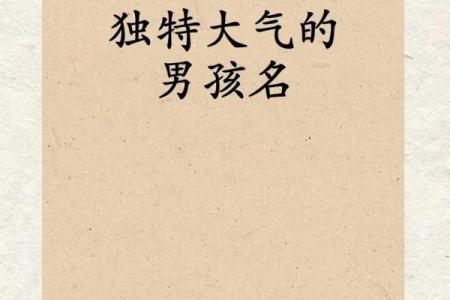 独特大气的
男孩名